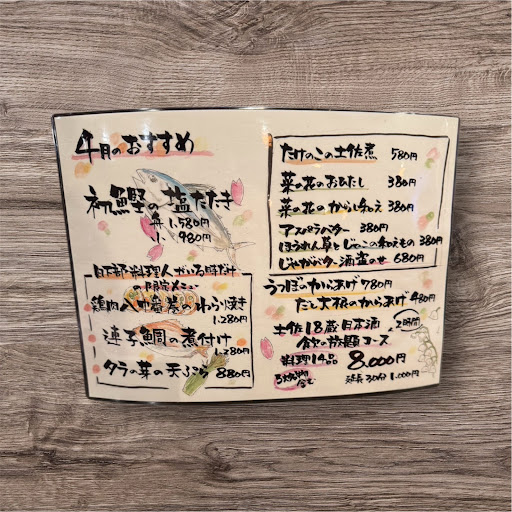 4月のおすすめ
初鰹の塩たたき
舟 1.580円
小 980円
日下部料理人がいる時だけ
の限定メニュー
鶏肉八幡巻のわら焼き
1.280円
連子鯛の煮付け
1.280円
タラの芽の天ぷら 880円
たけのこの土佐煮 580円
菜の花のおひたし 380円
菜の花のからし和え 380円
アスパラバター 380円
ほうれん草とじゃこの和えもの 380円
じゃがバター酒盗のせ 680円
うつぼのからあげ 780円
だし大根のからあげ 480円
土佐18蔵日本酒
飲み放題コース
2時間
料理14品 8.000円
延長30分 1.000円